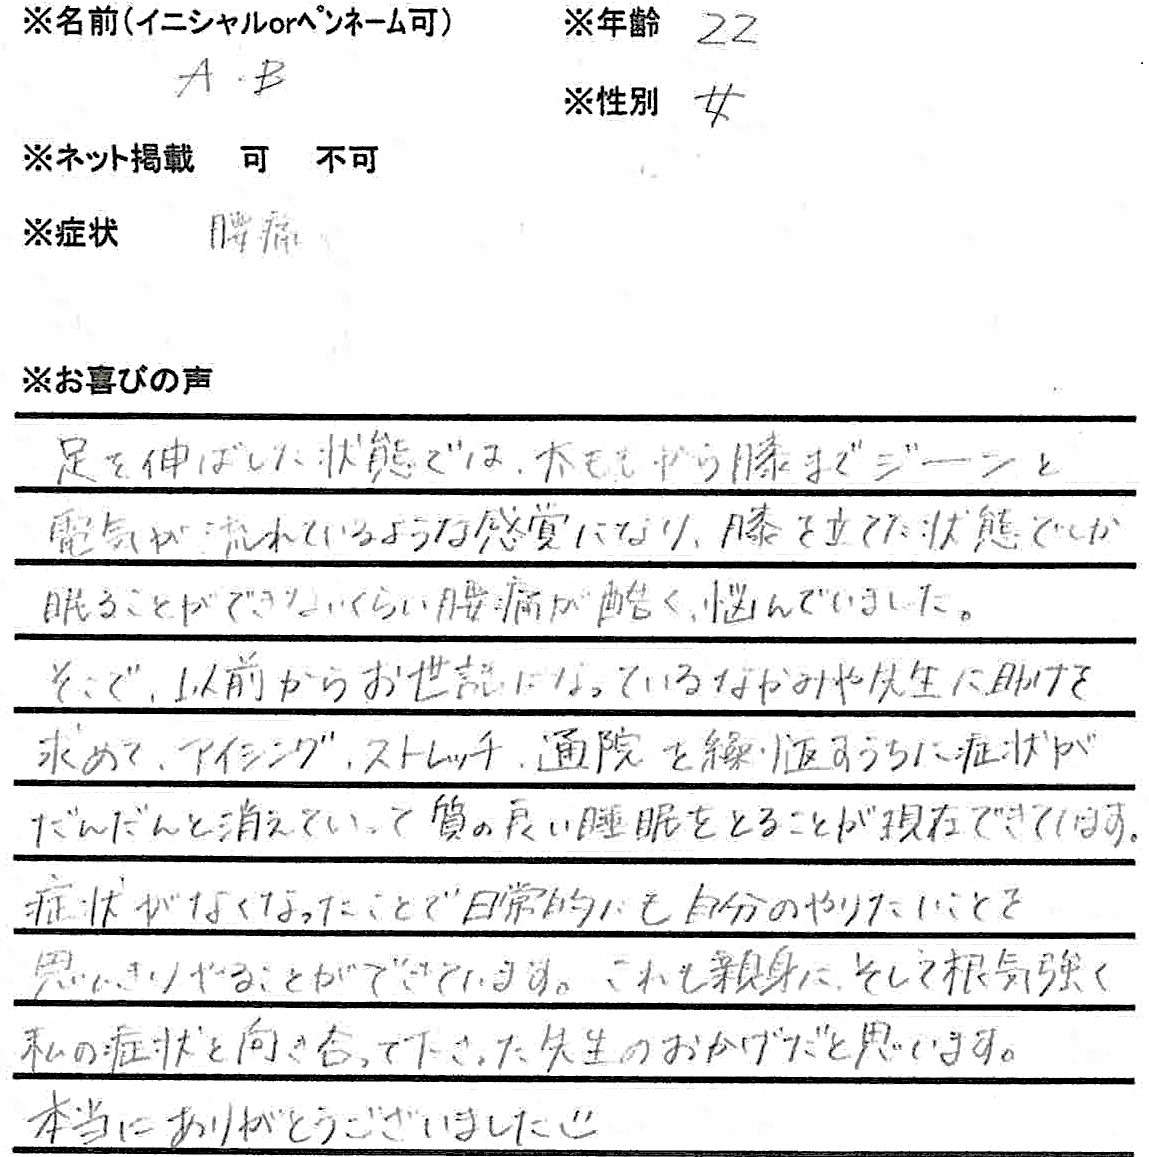 ※名前(イニシャルorペンネーム可)
A.B
※年齢 22
※性別 女
※ネット掲載 可 不可
※症状 腰痛
※お喜びの声
足を伸ばした状態では、太ももから膝までジーンと
電気が流れているような感覚になり、膝を立てた状態でしか
眠ることができないくらい腰痛が酷く、悩んでいました。
そこで、以前からお世話になっているなかみや先生に助けを
求めて、アイシング、ストレッチ、通院を繰り返すうちに症状が
だんだんと消えていって質の良い睡眠をとることが現在できています。
症状がなくなったことで日常的にも自分のやりたいことを
思いきりやることができています。これも親身に、そして根気強く
私の症状と向き合って下さった先生のおかげだと思います。
本当にありがとうございました